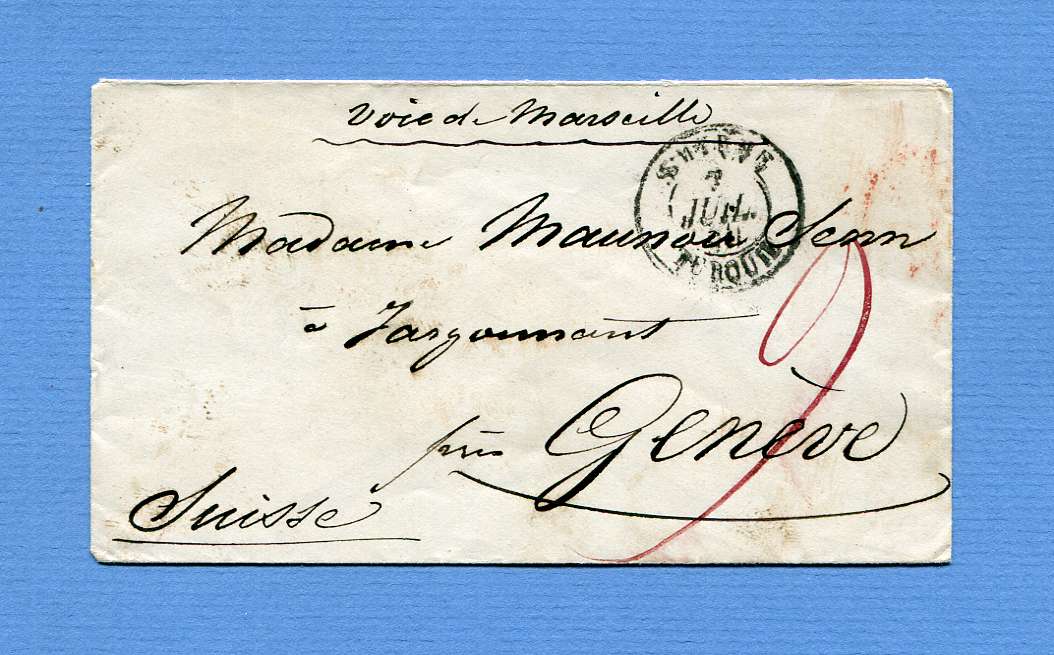 Voie de Marseille
SMYRNE
JUIL.
TURQUIE
Madame Maunoir Senn
à Jargonnant
près Genève
Suisse